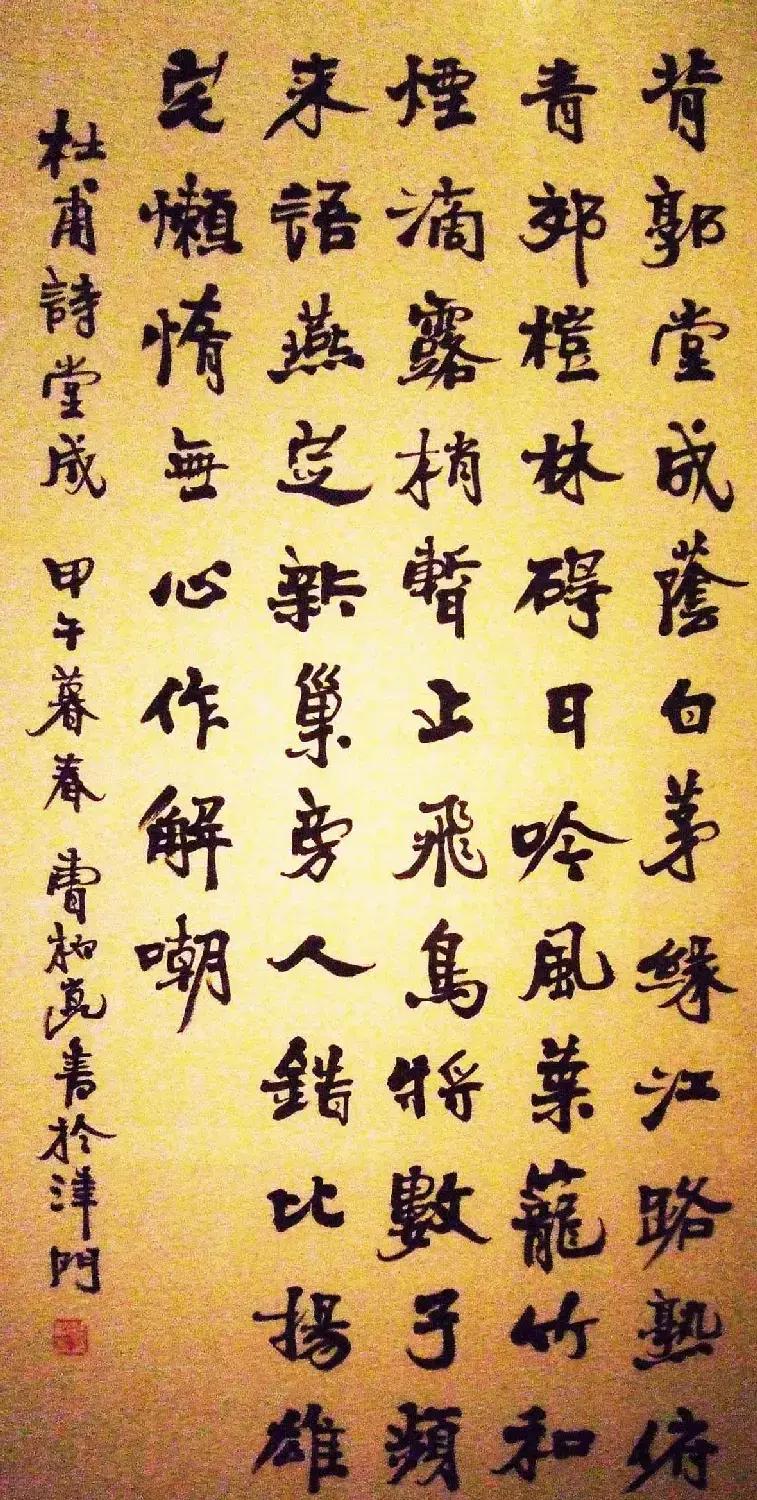 背郭堂成蔭白茅緣江路熟俯
青郊榿林礙日吟風葉籠竹和
煙滴露梢暫止飛鳥將數子頻
来語燕定新巢旁人錯比揚雄
宅懶惰無心作解嘲
杜甫詩堂成 甲午暮春 曹柏崑書於津門